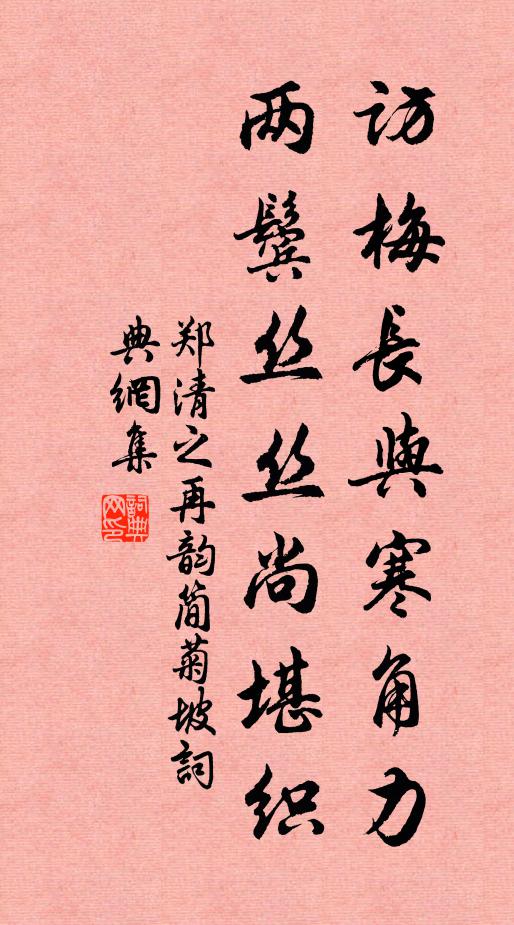 访梅長與寒角力
两鬓丝丝尚堪织
郑清之再韵简菊坡詞
典網集
詞典网印